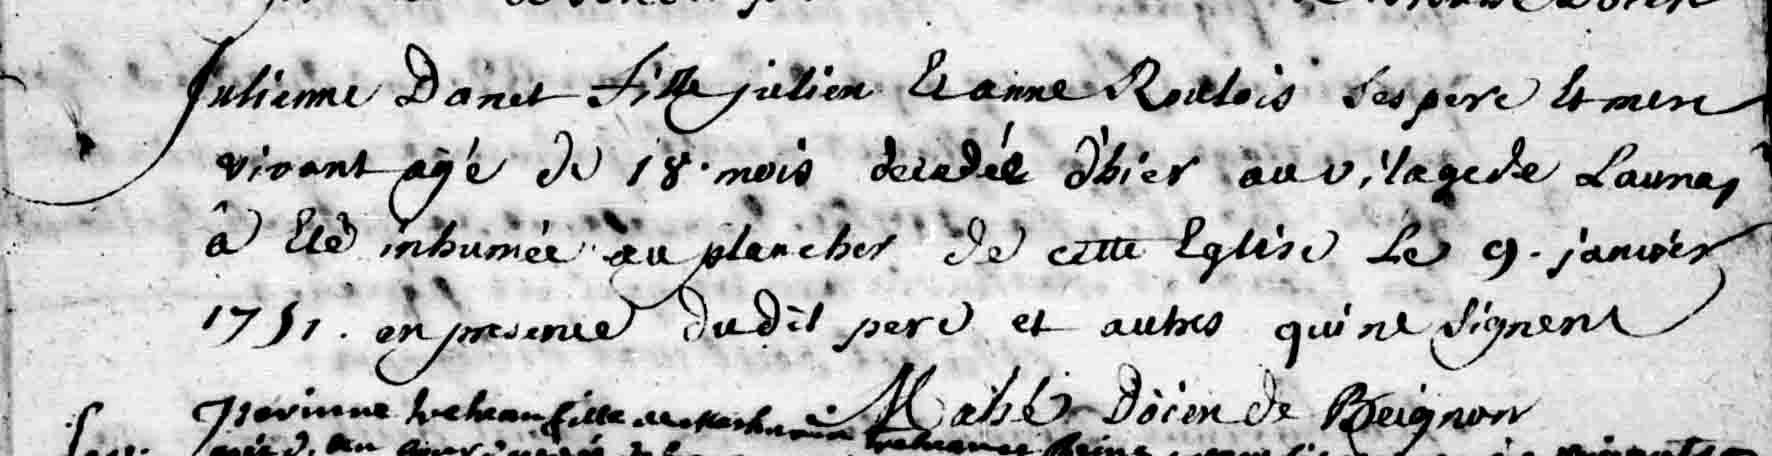 Julienne Danet fille julien Et anne Roulois Ses pere Et mere
vivant agé de 18. mois decedée d'hier au vilage de Launay
â Etê inhumée au plancher de cette Eglise Le 9. janvier
1751. en presence dudit pere et autres qui ne Signent
Mahé Doien de Beignon
Perinne fille de